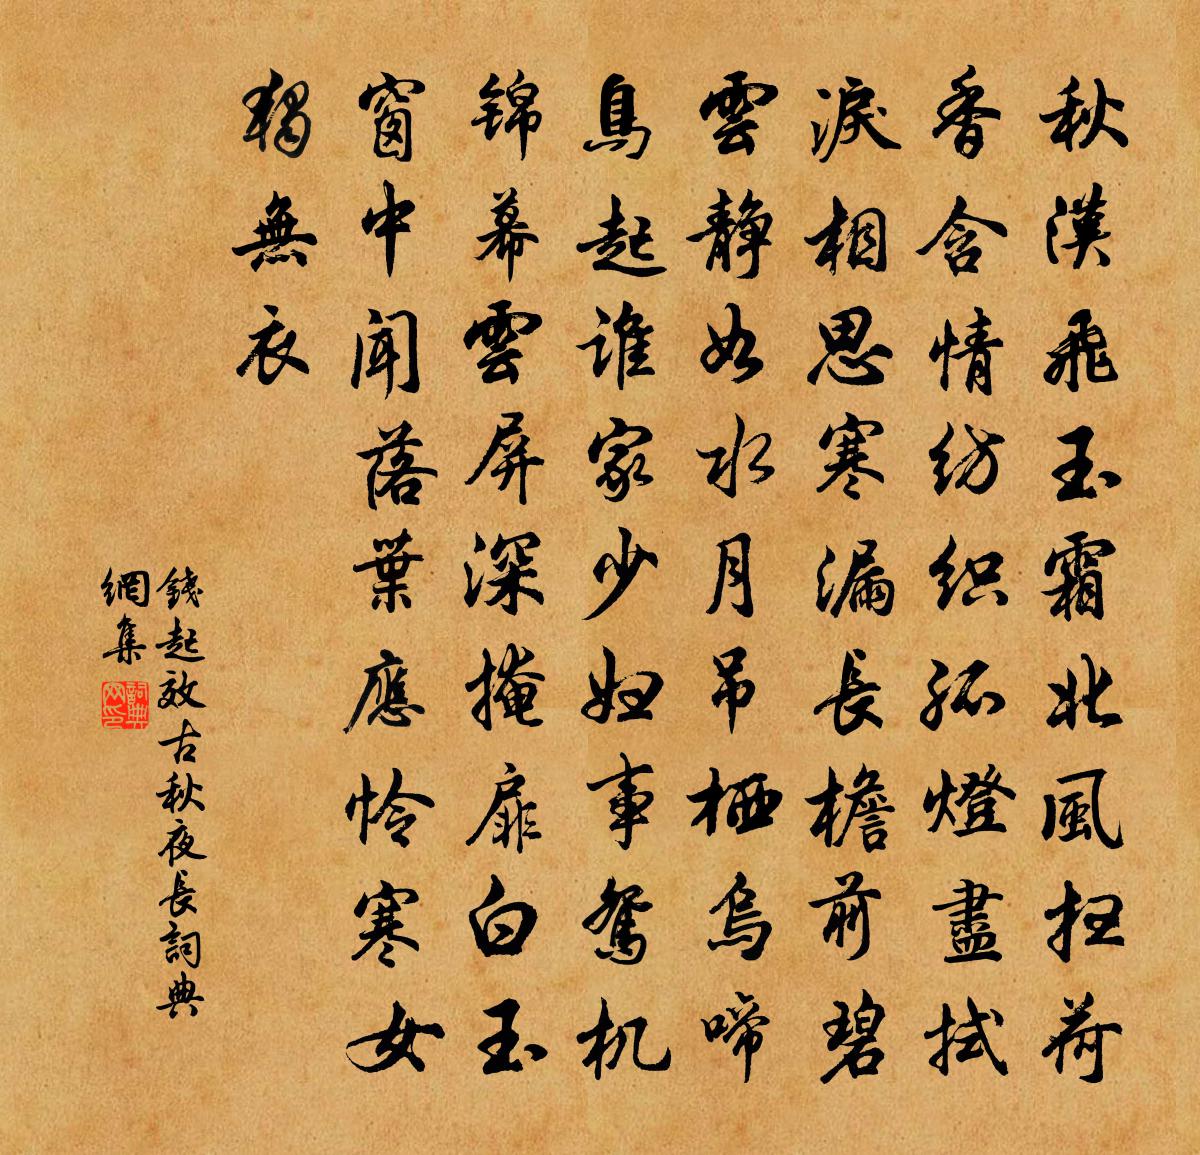 秋漢飛玉霜北風扫荷
香含情纺织孤燈盡拭
淚相思寒漏長檐前碧
雲静如水月吊栖烏啼
鳥起誰家少妇事鴛机
锦幕雲屏深掩扉白玉
窗中聞落葉應怜寒女
獨無衣
錢起效古秋夜長詞典
網集
詞典网印